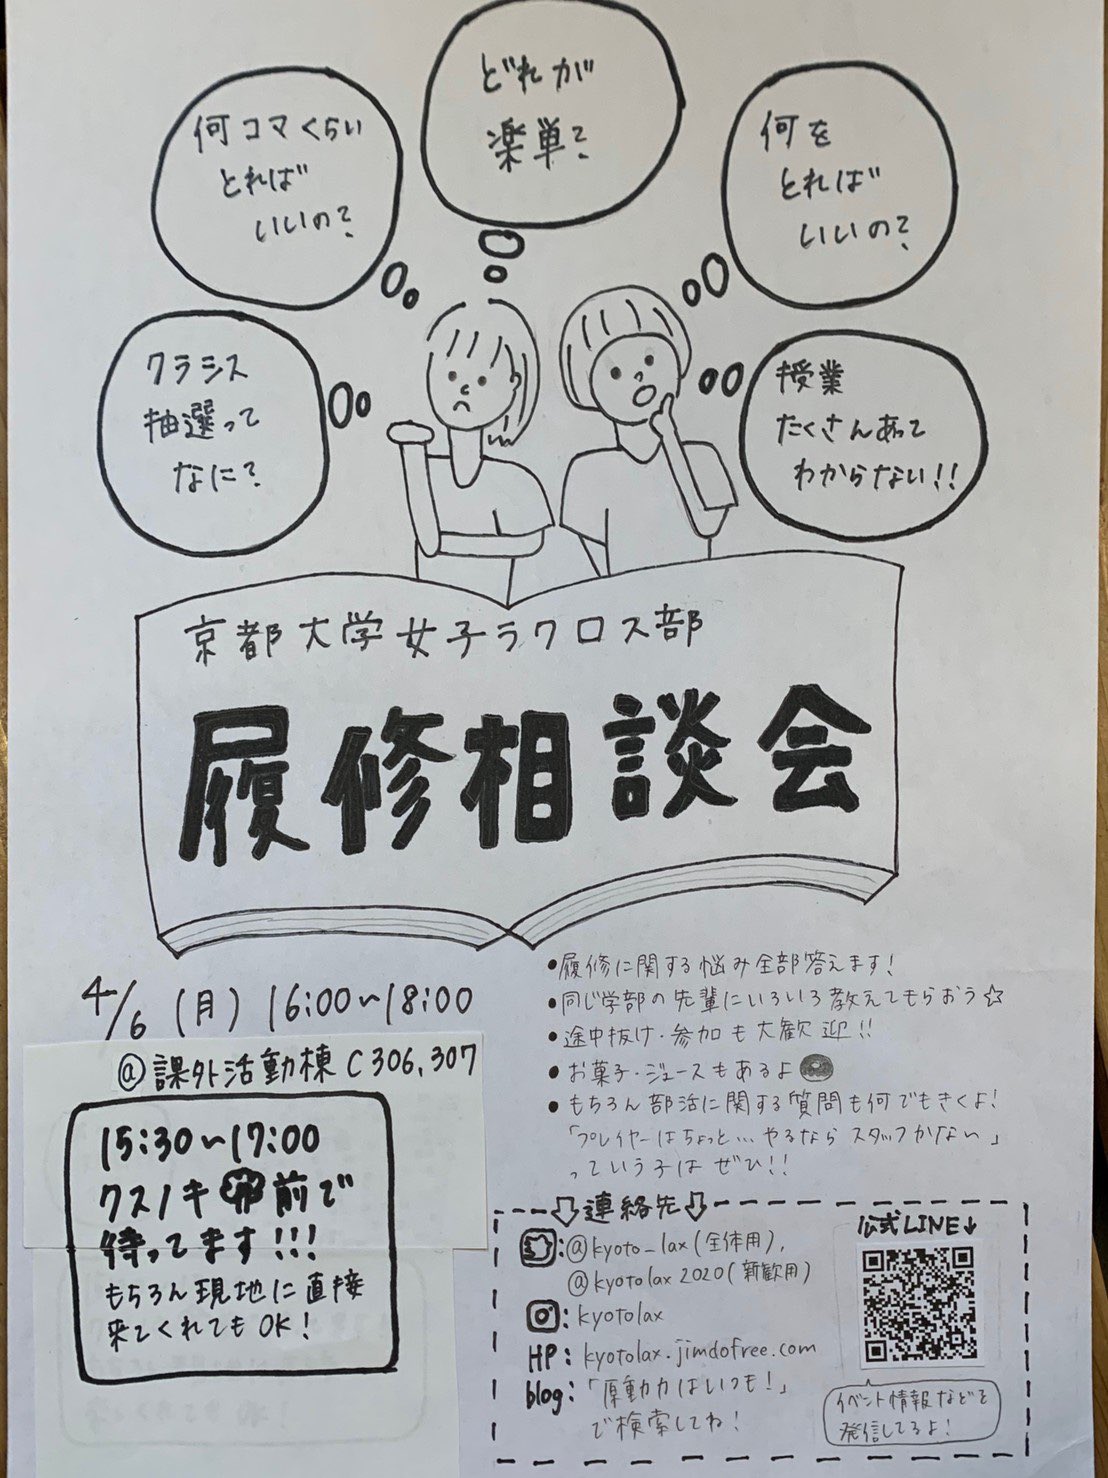 どれが
楽単?
何コマくらい
とれば
いいの?
何を
とれば
いいの?
クラシス
抽選って
なに?
授業
たくさんあって
わからない!!
京都大学女子ラクロス部
履修相談会
4/6(月) 16:00~18:00
@課外活動棟C306,307
15:30~17:00
クスノキ前で
待ってます!!!
もちろん現地に直接
来てくれてもOK!
•履修に関する悩み全部答えます!
•同じ学部の先輩にいろいろ教えてもらおう☆
•途中抜け・参加も大歓迎!!
•お菓子・ジュースもあるよ
•もちろん部活に関する質問も何でもきくよ!
「プレイヤーはちょっと…やるならスタッフかな」
っていう子はぜひ!!
⇩連絡先⇩
:@kyoto_lax(全体用),
@kyotolax2020(新歓用)
:kyotolax
HP:kyotolax.jimdofree.com
blog:「原動力はいつも!」
で検索してね!
公式LINE↓
イベント情報などを
発信してるよ!